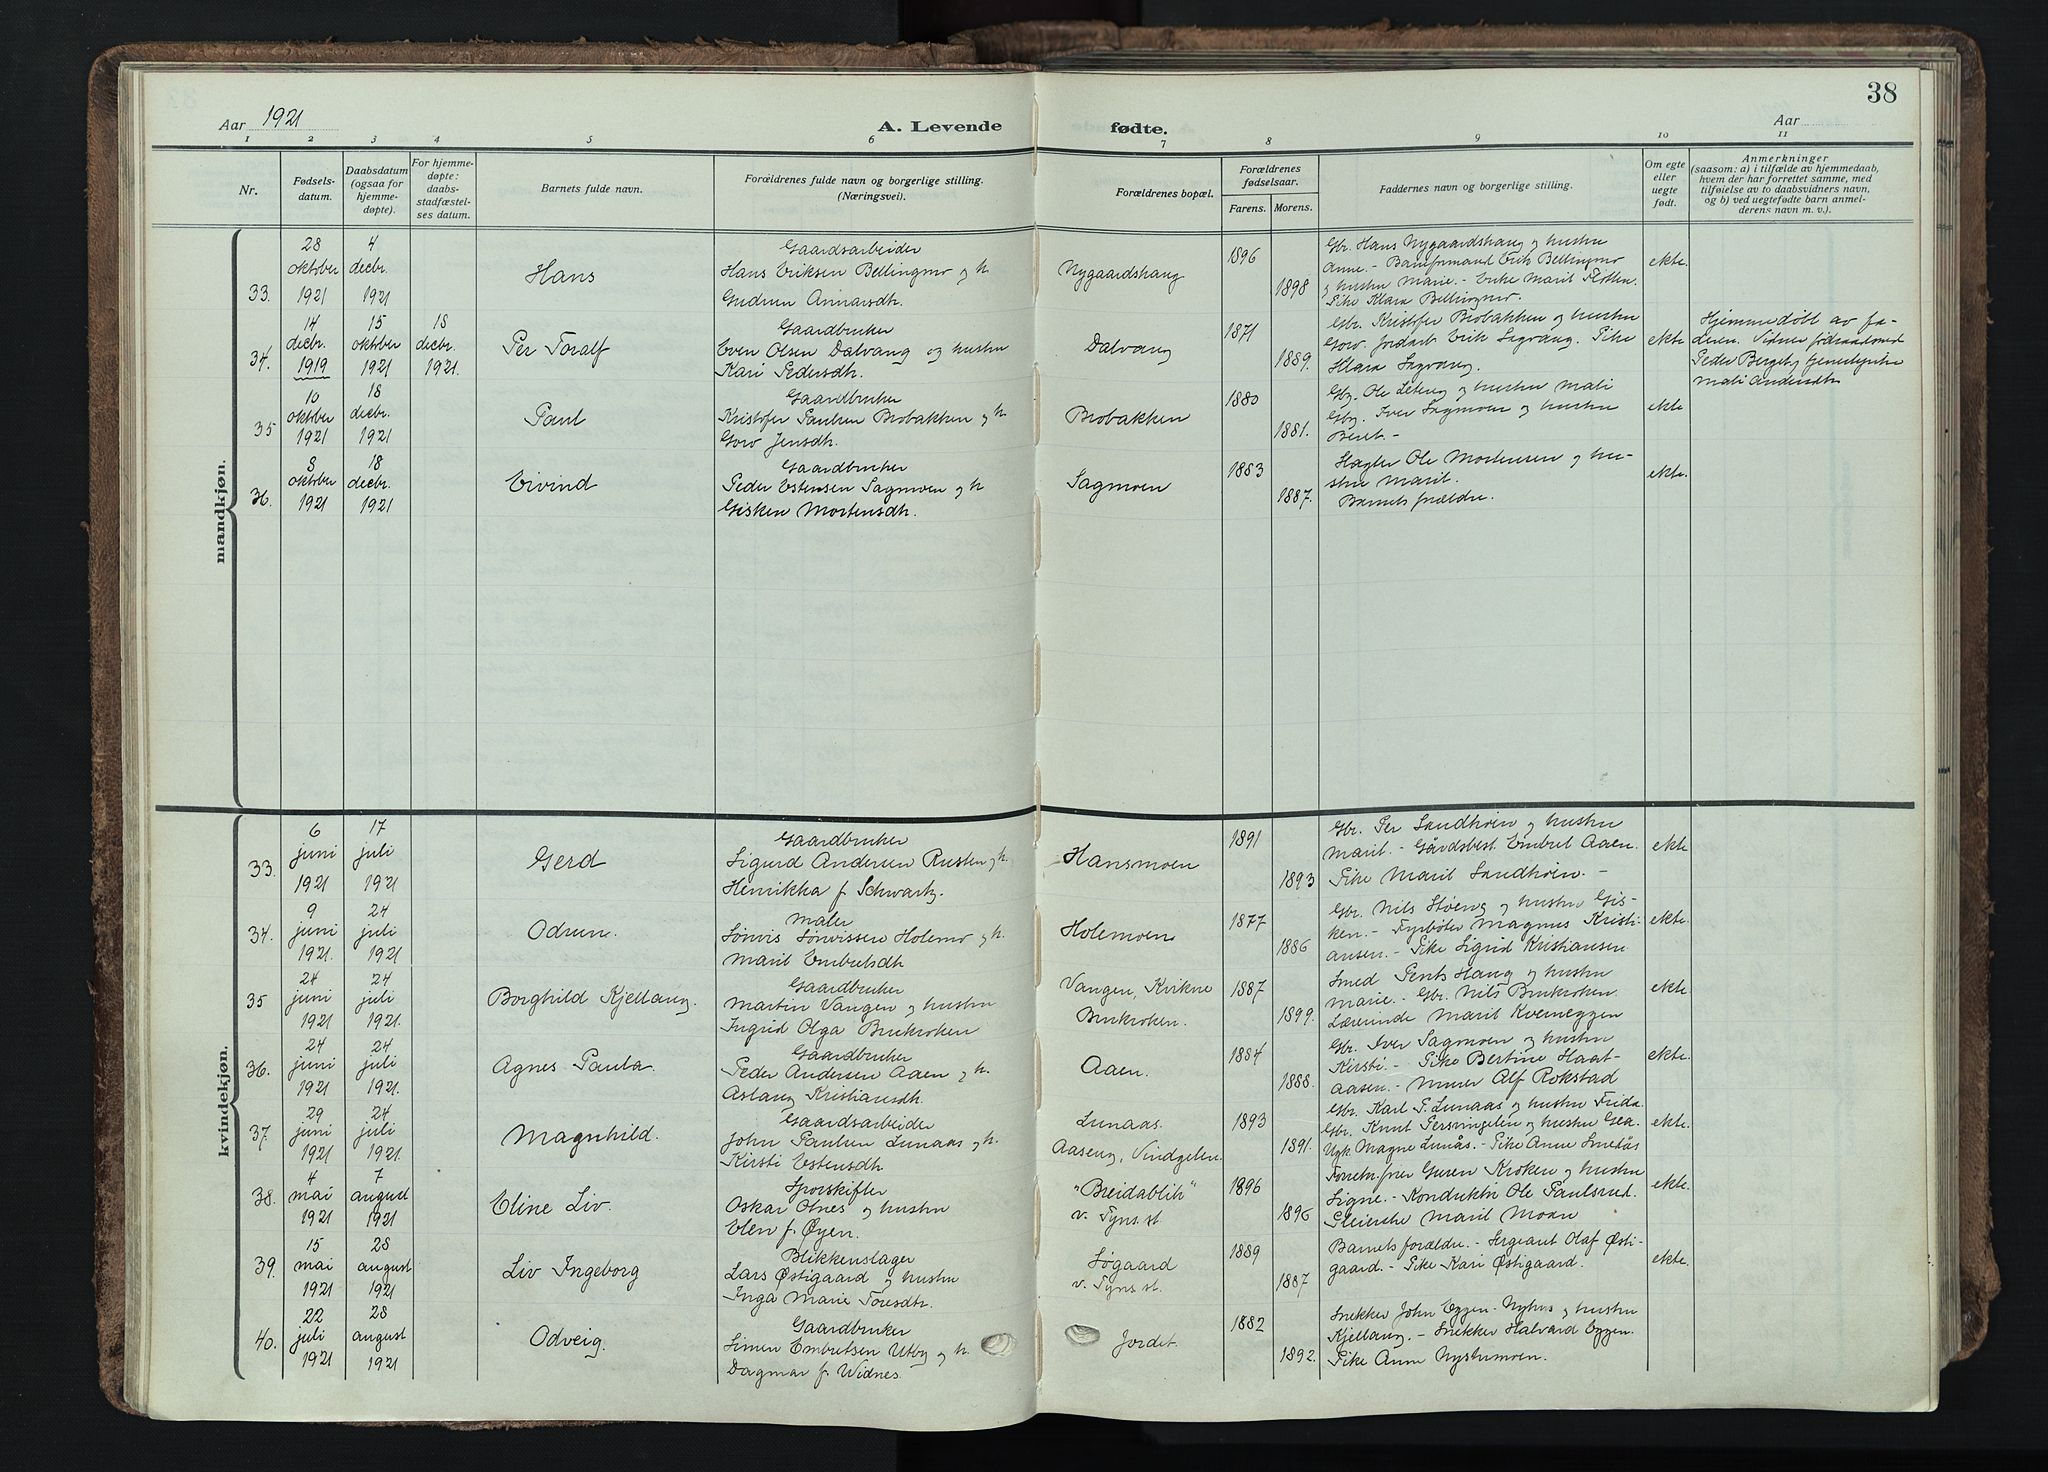 38
Aar 1921
A. Levende fødte.
Aar
1 2 3 4 5 6 7 8 9 10 11
Nr.
Fødsels-
datum.
Daabsdatum
(ogsaa for
hjemme-
døpte).
For hjemme-
døpte:
daabs-
stadfæstel-
ses datum.
Barnets fulde navn.
Forældrenes fulde navn og borgerlige stilling.
(Næringsvei).
Forældrenes bopæl.
Forældrenes
fødselsaar.
Farens. Morens.
Faddernes navn og borgerlige stilling.
Om egte
eller
uegte
født.
Anmerkninger
(saasom: a) i tilfælde av hjemmedaab,
hvem der har forrettet samme, med
tilføielse av to daabsvidners navn,
og b) ved uegtefødte barn anmel-
derens navn m. v.).
mandkjøn.
33.
28
oktober
1921
4
decbr.
1921
Hans
Gaardsarbeider
Hans Eriksen Bellingmo og h.
Gudrun Annarsdtr.
Nygaardshaug
1896
1898
Gbr. Hans Nygaardshaug og hustru
Anne. - Erik Bellingmo
og hustru Marie. - Enke Marit
Pike Klara Bellingmo.
ekte.
34.
14
decbr.
1919
15
oktober
1921
18
decbr.
1921.
Per Toralf
Gaardbruker
Even Olsen Dalvang og hustru
Kari Pedersdtr.
Dalvang
1871
1889.
Gbr. Kristofer Brobakken og hustru
Goro. Jordarb. Erik Segvang. Pike
Klara Segvang.
ekte
Hjemmedøbt av fa-
deren. Vidner fødraadsmd
Peder Berget og tjenestepike
Mali Andersdtr
35
10
oktober
1921
18
decbr.
1921
Paul
Gaardbruker
Kristofer Paulsen Brobakken og h.
Goro Jensdtr.
Brobakken
1880
1881.
Gbr. Ole og hustru Mali
Gbr. Iver Sagmoen og hustru
Beret. -
ekte
36.
8
oktober
1921
18
decbr.
1921
Eivind
Gaardbruker
Peder Estensen Sagmoen og h
Gisken Mortensdtr.
Sagmoen
1883
1887.
Ole Mortensen og hu-
stru Marit.
Barnets forældre.
ekte.
kvindekjøn.
33.
6
juni
1921
17
juli
1921
Gerd
Gaardbruker
Sigurd Andersen Rusten og h.
Henrikka f. Schwartz.
Hansmoen
1891
1893
Gbr. Per Sandhøen og hustru
Marit. - Gårdsbest. Embret Aaen.
Pike Marit Sandhøen. -
ekte
34.
9
juni
1921.
24
juli
1921
Odrun.
Maler
Sønvis Sønvissen Holemo og h.
Marit Embretsdtr
Holemoen
1877
1886
Gbr. Nils Støeng og hustru Gis-
ken. - Fyrbøter Magnus Kristi-
ansen. - Pike Sigrid Kristiansen
ekte.
35
24
juni
1921
24
juli
1921.
Borghild Kjellaug.
Gaardbruker
Martin Vangen og hustru
Ingrid Olga Brukroken
Vangen, Kvikne
Brukroken.
1887
1899.
Smed Pents Haug og hustru
Marie. - Gbr. Nils Brukroken.
Lærerinde Marit Kverneggen
ekte.
36.
24
juni
1921
24
juli
1921.
Agnes Paula.
Gaardbruker
Peder Andersen Aaen og h.
Aslaug Kristiansdtr.
Aaen.
1884
1888.
Gbr. Iver Sagmoen og hustru
Kirsti. - Pike Bertine Haat-
aasen. - Murer Alf Rokstad
ekte.
37.
29
juni
1921
24
juli
1921.
Magnhild.
Gaardsarbeider
John Paulsen Lunaas og h.
Kirsti Estensdtr
Lunaas.
Aaseng, Vindgelen.
1893
1891.
Gbr. Karl P. Lunaas og hustru Frida.
Gbr. Knut Persvingelen og hustru Gea.
Ugk Magne Lunås. - Pike Anne
ekte.
38.
4
mai
1921
7
august
1921
Eline Liv.
Sporskifter
Oskar Olnes og hustru
Elen f. Øyen.
"Breidablik"
v. Tyns. st.
1896
1896
Guren Kroken og hustru
Signe. - Konduktør Ole Paulsrud.
Pleierske Marit Moan
ekte.
39.
15
mai
1921
28
august
1921
Liv Ingeborg
Blikkenslager
Lars Østigaard og hustru
Inga Marie Toresdtr.
Søgaard
v. Tyns. st.
1889
1887
Barnets forældre. - Sergeant Olaf Østi-
gaard. - Pike Kari Østigaard.
ekte.
40.
22
juli
1921
28
august
1921
Odveig.
Gaardbruker
Simen Embretsen Utby og h.
Dagmar f. Widnes.
Jordet.
1882
1892.
Snekker John Eggen-Nyhus og hustru
Kjellaug. - Snekker Halvard Eggen.
Pike Anne Nystumoen.